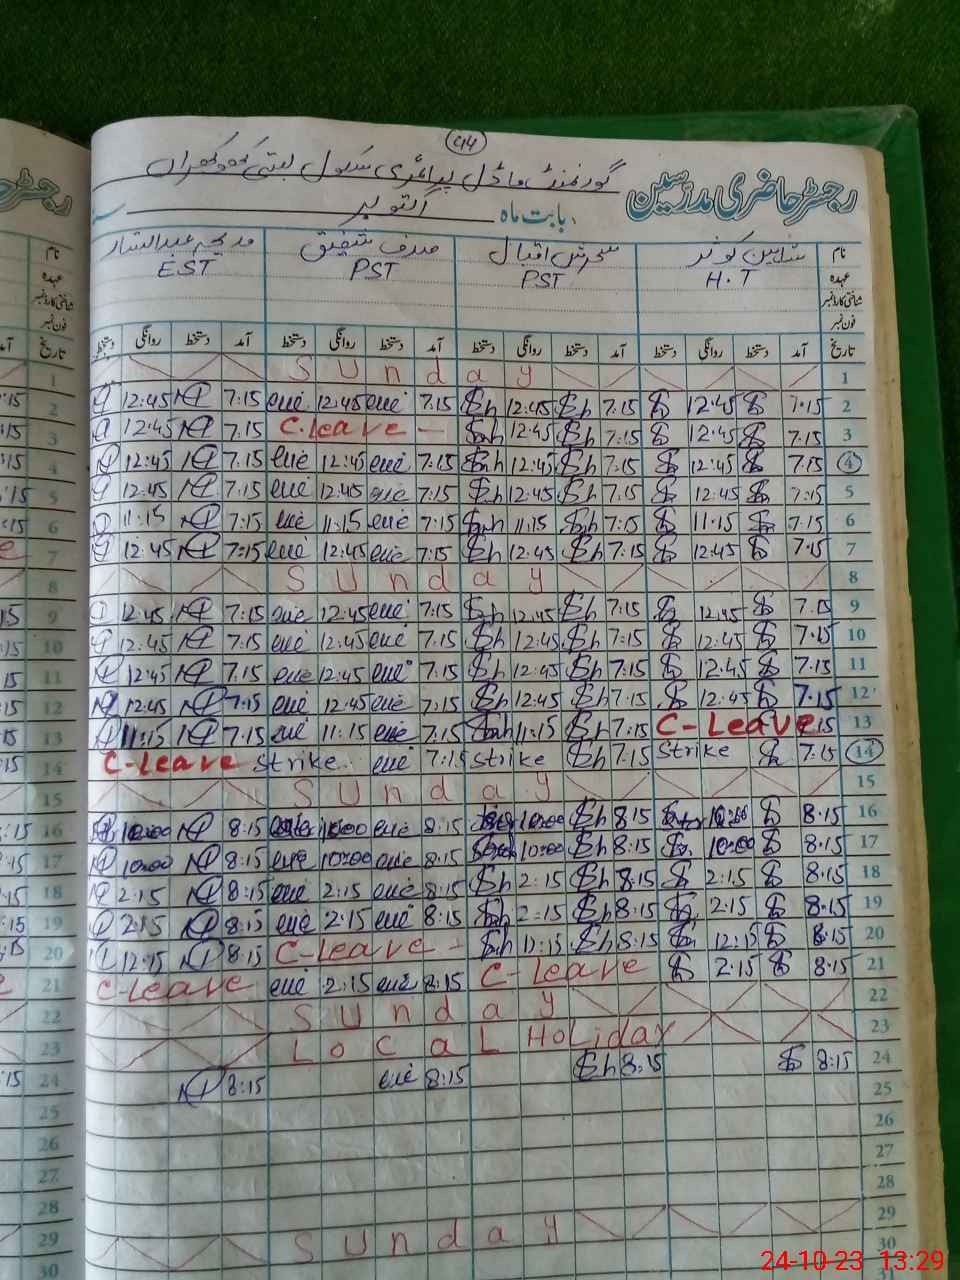 44
گورنمنٹ ماڈل پرائمری سکول بستی کھوکھراں
رجسٹر حاضری مدرسین بابت ماہ اکتوبر
نام شاہین کوثر سحرش اقبال صدف شفیق مدیحہ عبدالستار
عہدہ H.T PST PST EST
شناختی کارڈ نمبر
فون نمبر
تاریخ آمد دستخط روانگی دستخط آمد دستخط روانگی دستخط آمد دستخط روانگی دستخط آمد دستخط روانگی دستخط
Sunday 1
12:45 7:15 12:45 7:15 12:45 7:15 12:45 7:15 2
12:45 7:15 C.leave - 12:45 7:15 12:45 7:15 3
12:45 7:15 12:45 7:15 12:45 7:15 12:45 7:15 4
12:45 7:15 12:45 7:15 12:45 7:15 12:45 7:15 5
11:15 7:15 11:15 7:15 11:15 7:15 11:15 7:15 6
12:45 7:15 12:45 7:15 12:45 7:15 12:45 7:15 7
Sunday 8
12:45 7:15 12:45 7:15 12:45 7:15 12:45 7:15 9
12:45 7:15 12:45 7:15 12:45 7:15 12:45 7:15 10
12:45 7:15 12:45 7:15 12:45 7:15 12:45 7:15 11
12:45 7:15 12:45 7:15 12:45 7:15 12:45 7:15 12
11:15 7:15 11:15 7:15 11:15 7:15 C-Leave 13
C-Leave Strike 7:15 Strike 7:15 Strike 7:15 14
Sunday 15
10:00 8:15 10:00 8:15 10:00 8:15 10:00 8:15 16
10:00 8:15 10:00 8:15 10:00 8:15 10:00 8:15 17
2:15 8:15 2:15 8:15 2:15 8:15 2:15 8:15 18
2:15 8:15 2:15 8:15 2:15 8:15 2:15 8:15 19
12:15 8:15 C-Leave - - 12:15 8:15 12:15 8:15 20
C-Leave 2:15 8:15 C-Leave 2:15 8:15 21
Sunday 22
Local Holiday 23
8:15 8:15 8:15 8:15 24
25
26
27
28
Sunday 29
30
24-10-23 13:29